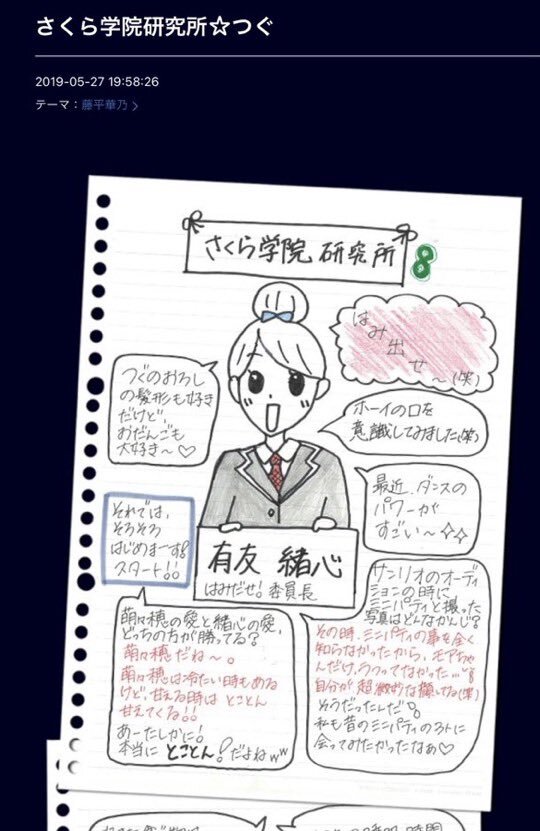 さくら学院研究所☆つぐ
2019-05-27 19:58:26
テーマ：藤平華乃
さくら学院 研究所 8
はみ
出
せ
〜(笑)
つぐのおろし
の髪形も好き
だけど、
おだんごも
大好き〜♡
ホーイの口を
意識してみました(笑)
最近、ダンスの
パワーが
すごい〜✧✧
それでは、
そろそろ
はじめまーす!
スタート!!
有友 緒心
はみだせ! 委員長
萌々穂の愛と緒心の愛、
どっちの方が勝ってる?
萌々穂だね〜。
萌々穂は冷たい時もある
けど、甘える時は とことん
甘えてくる!!
あーたしかに!
本当に とことん! だよねww
サンリオのオーディ
ションの時に
ミニパティと撮った
写真はどんなかんじ?
その時、ミニパティの事を全く
知らなかったから、モアちゃ
んだけ、うつってなかった…!
自分が 超微妙な顔してる(笑)
そうだったんだ!
私も昔のミニパティの3人に
会ってみたかったなぁ♡